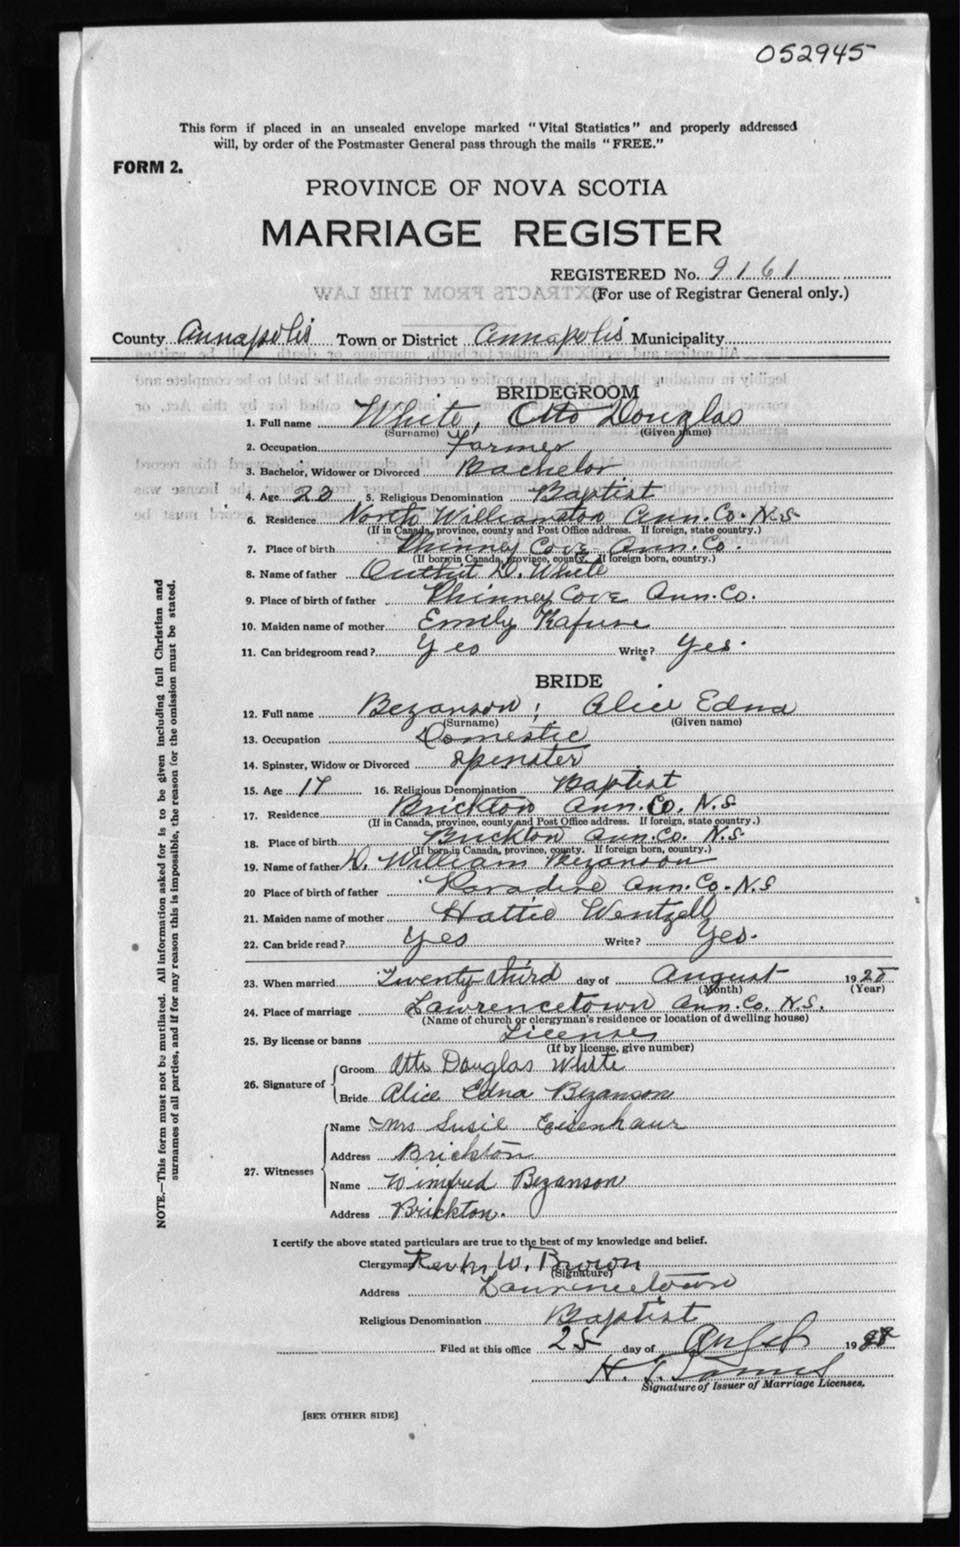 052945
This form if placed in an unsealed envelope marked "Vital Statistics" and properly addressed
will, by order of the Postmaster General pass through the mails "FREE."
FORM 2.
PROVINCE OF NOVA SCOTIA
MARRIAGE REGISTER
REGISTERED No. 9161
(For use of Registrar General only.)
County Annapolis Town or District Annapolis Municipality
BRIDEGROOM
1. Full name White, Otto Douglas
(Surname) (Given name)
2. Occupation Farmer
3. Bachelor, Widower or Divorced Bachelor
4. Age 5. Religious Denomination Baptist
6. Residence North Williamston Ann. Co. N.S
(If in Canada, province, county and Post Office address. If foreign, state country.)
7. Place of birth Phinney Cove Ann. Co.
(If born in Canada, province, county. If foreign born, country.)
8. Name of father D. White
9. Place of birth of father Phinney Cove Ann. Co.
10. Maiden name of mother Emily
11. Can bridegroom read? Yes Write? Yes.
BRIDE
12. Full name Bezanson; Alice Edna
(Surname) (Given name)
13. Occupation Domestic
14. Spinster, Widow or Divorced Spinster
15. Age 17 16. Religious Denomination Baptist
17. Residence Brickton Ann. Co. N.S.
(If in Canada, province, county and Post Office address. If foreign, state country.)
18. Place of birth Brickton Ann. Co. N.S
(If born in Canada, province, county. If foreign born, country.)
19. Name of father William Bezanson
20 Place of birth of father Paradise Ann. Co. N.S
21. Maiden name of mother Hattie Wentzell
22. Can bride read? Yes Write? Yes.
23. When married Twenty third day of August 1928
(Month) (Year)
24. Place of marriage Lawrencetown Ann. Co. N.S.
(Name of church or clergyman's residence or location of dwelling house)
25. By license or banns License
(If by license, give number)
26. Signature of
Groom Otto Douglas White
Bride Alice Edna Bezanson
27. Witnesses
Name Mrs Susie Eisenhaur
Address Brickton
Name Winifred Bezanson
Address Brickton.
I certify the above stated particulars are true to the best of my knowledge and belief.
Clergyman W. Brown
(Signature)
Address Lawrencetown
Religious Denomination Baptist
Filed at this office 25 day of 1928
Signature of Issuer of Marriage Licenses.
[SEE OTHER SIDE]
NOTE.—This form must not be mutilated. All information asked for is to be given including full Christian and
surnames of all parties, and if for any reason this is impossible, the reason for the omission must be stated.